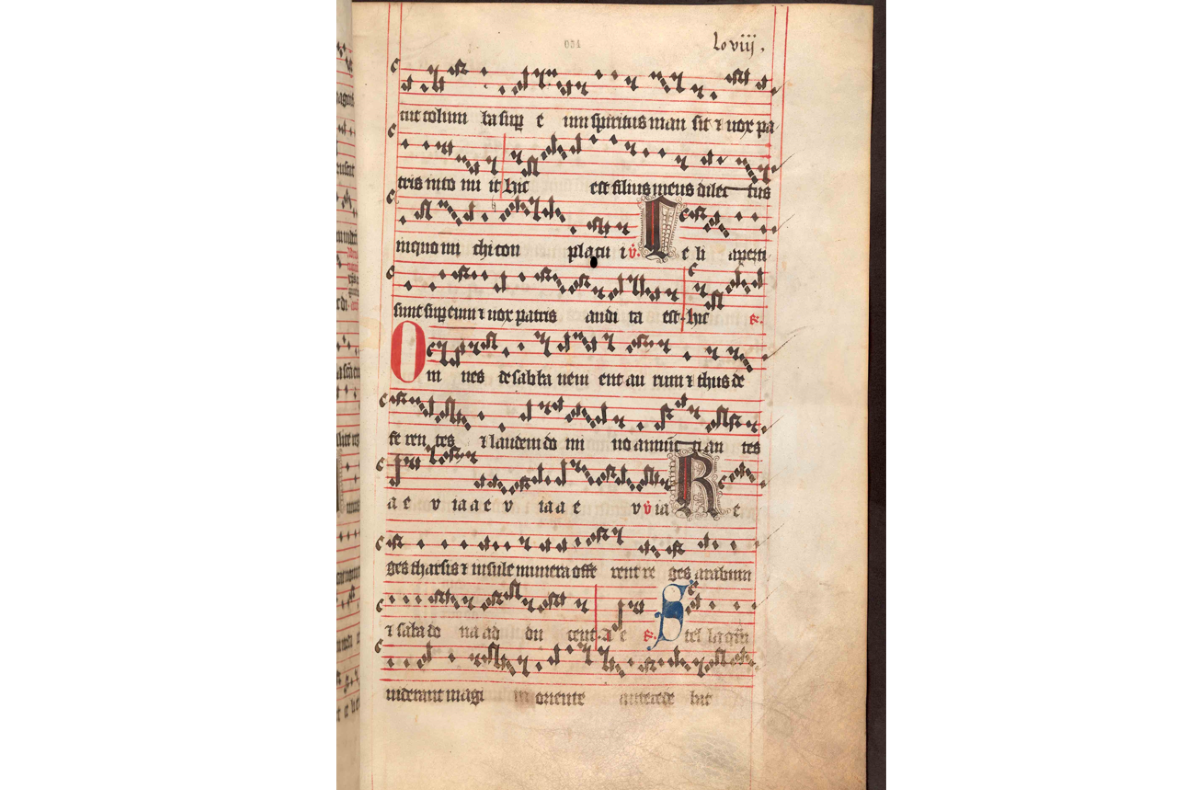 lxviij.
cut colum ba sup e um spiritus man sit ⁊ uox pa
tris into nu it hic est filius meus dilec tus
in quo mi chi con placu i v̓. C e li aperti
sunt sup eum ⁊ uox patris audi ta est hic R̓.
O m nes de saba ueni ent au rum ⁊ thus de
fe ren tes ⁊ laudem do mi no annūc ti an tes
a e v ia a e v ia a e v v̓ ia R e
ges tharsis ⁊ insule munera offe rent re ges arabum
⁊ saba do na ad du cent a e R̓. S tel la quā
uiderant magi in oriente antecede bat